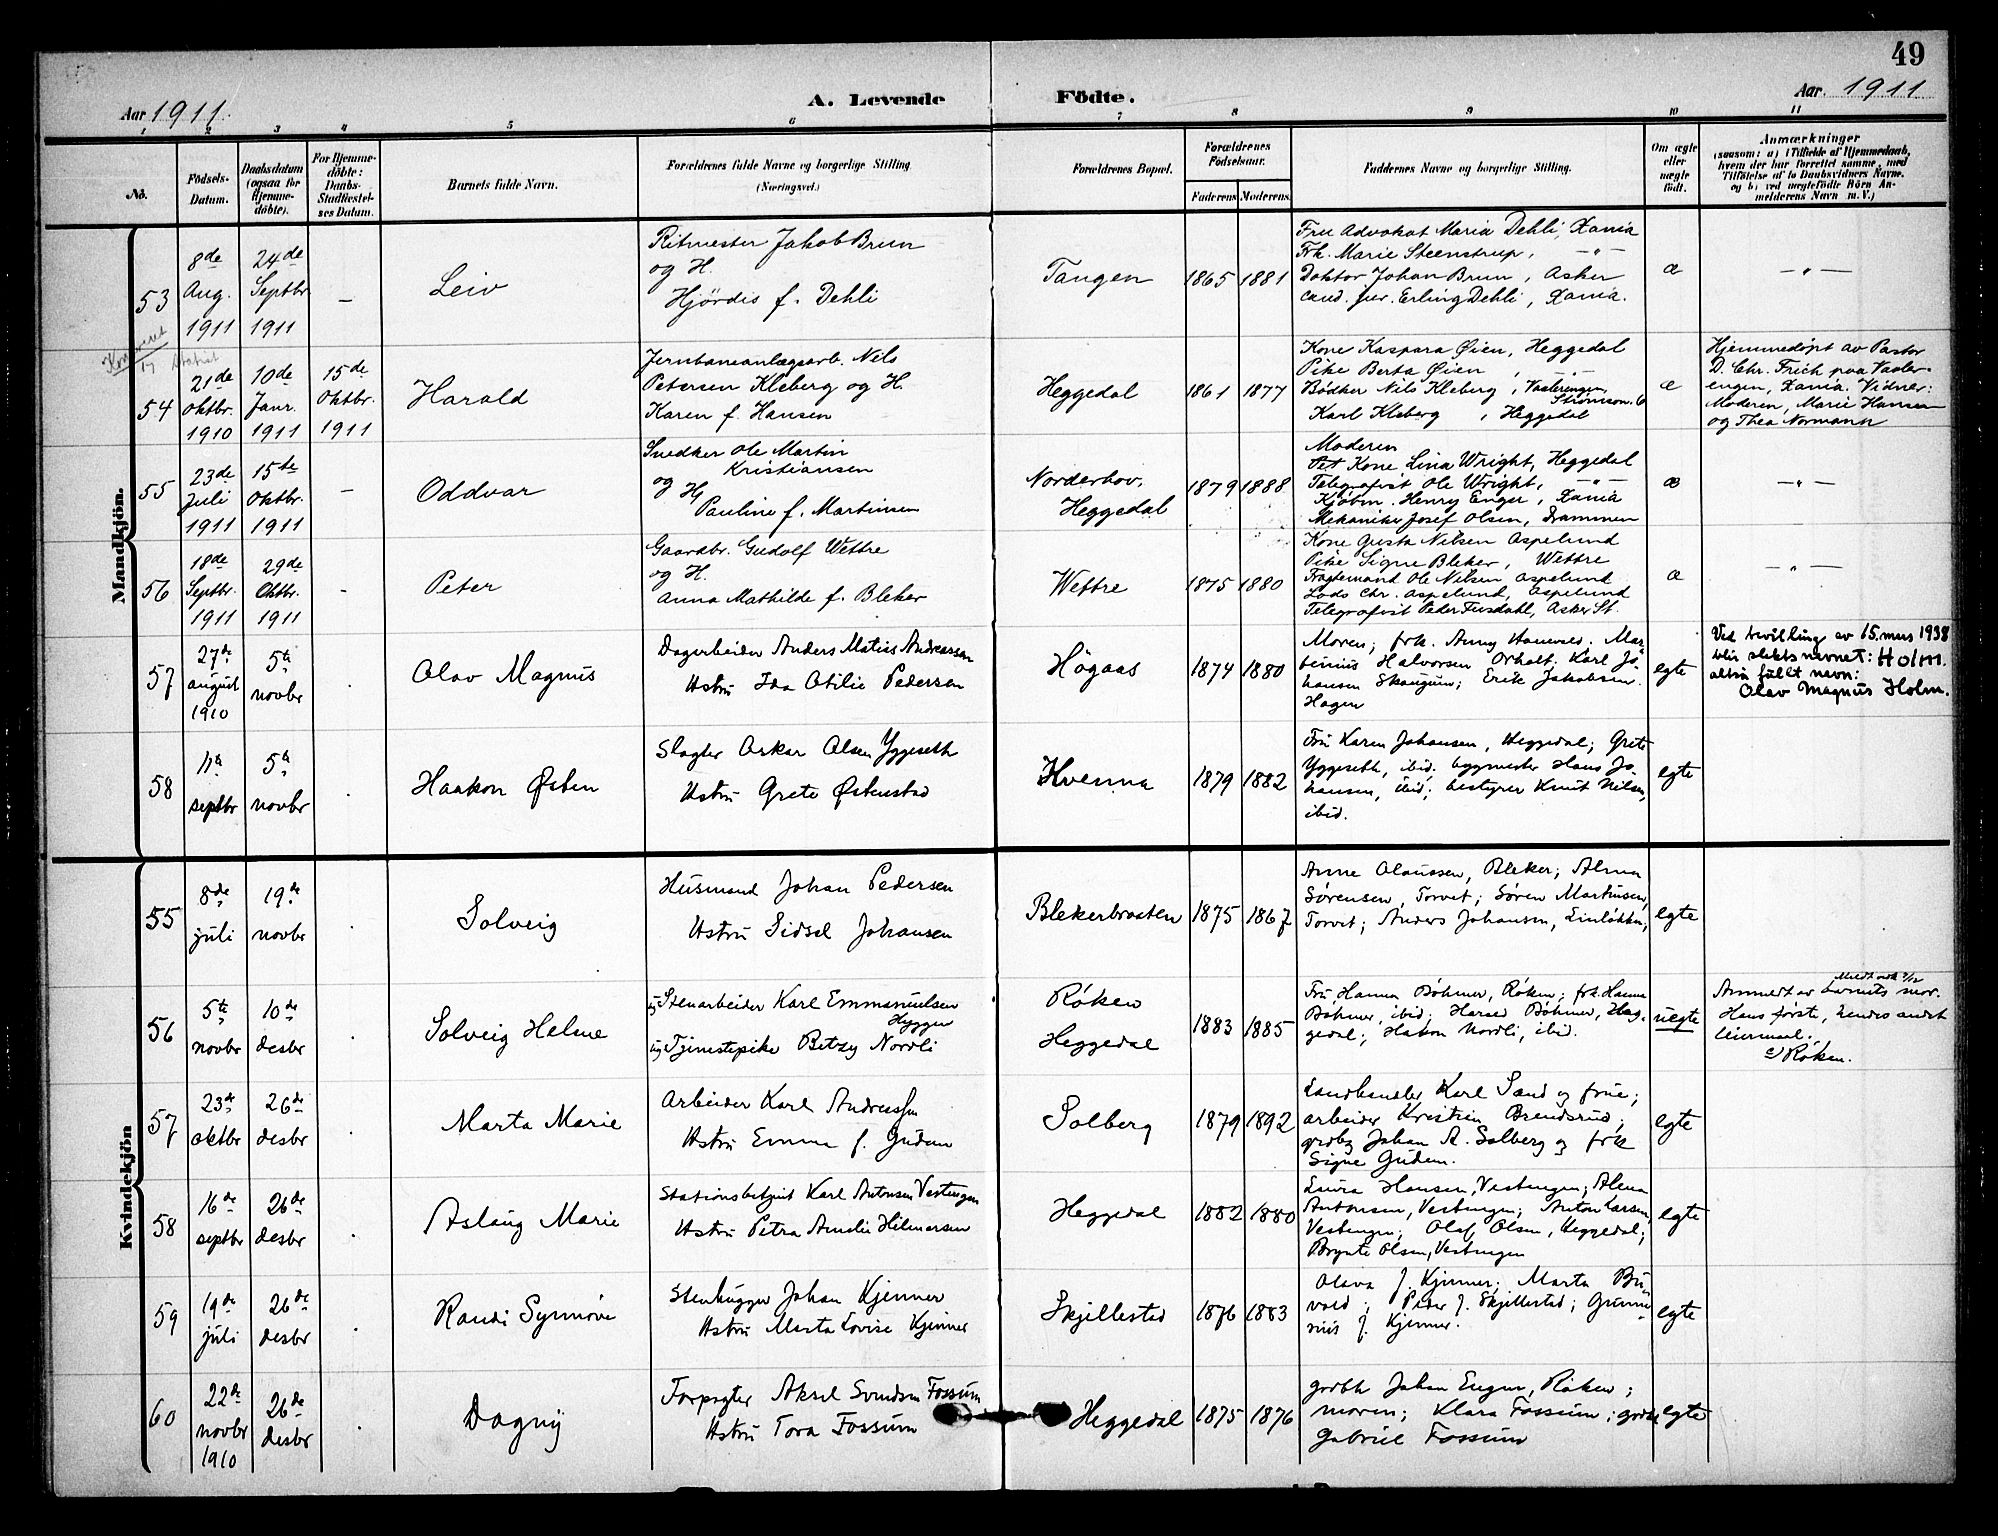 49
Aar 1911. A. Levende Födte. Aar. 1911
1 2 3 4 5 6 7 8 9 10 11
No.
Födsels-Datum.
Daabsdatum (ogsaa for Hjemme-döbte).
For Hjemme-döbte: Daabs-Stadfæstel-ses Datum.
Barnets fulde Navn.
Forældrenes fulde Navne og borgerlige Stilling. (Næringsvei.)
Forældrenes Bopæl.
Forældrenes Födselsaar.
Faderens Moderens.
Faddernes Navne og borgerlige Stilling.
Om ægte eller uægte født.
Anmærkninger
(saasom: a) i Tilfælde af Hjemmedaab, hvem der har forrettet samme, med Tilföielse af to Daabsvidners Navne. og b) ved uægtefödte Börn An-melderens Navn m. V.)
Mandkjön.
53
8de Aug. 1911
24de Septbr 1911
–
Leiv
Ritmester Jakob Brun
og H.
Hjördis f. Dehli
Tangen
1865 1881
Fru Advokat Maria Dehli, Xania
Frk. Marie Steenstrup, –"–
Doktor Johan Brun, Asker
cand. jur. Erling Dehli, Xania.
æ
–"–
54
21de Oktbr. 1910
10de Janr. 1911
15de Oktbr. 1911
Harald
Jernbaneanlægsarb. Nils
Petersen Kleberg og H.
Karen f. Hansen
Heggedal
1861 1877
Kone Kaspara Øien, Heggedal
Pike Berta Øien, –"–
Bødker Nils Kleberg, Vaalerengen,
Strömsv. 6
Karl Kleberg, Heggedal
æ
Hjemmedöpt av Pastor
D. Chr. Frich paa Vaaler-
engen, Xania. Vidner:
Moderen, Marie Hansen
og Thea Normann
55
23de Juli 1911
15te Oktbr. 1911
–
Oddvar
Snedker Ole Martin
Kristiansen
og H.
Pauline f. Martinsen
Norderhov,
Heggedal
1879 1888
Moderen
Kone Lina Wright, Heggedal
Telegrafist Ole Wright, –"–
Kjöbm. Henry Enger, Xania
Mekaniker Josef Olsen, Drammen
æ
–"–
56
18de Septbr. 1911
29de Oktbr. 1911
–
Peter
Gaardbr. Gudolf Wettre
og H.
Anna Mathilde f. Bleker
Wettre
1875 1880
Kone Gusta Nilsen Aspelund
Pike Signe Bleker, Wettre
Fragtemand Ole Nilsen Aspelund
Lods Chr. Aspelund, Aspelund
Telegrafist Peder Fusdahl, Asker St.
æ
–"–
57
27de august 1910
5te novbr
Olav Magnus
Dagarbeider Anders Matias Andreassen
Hstru Ida Otilie Pedersen
Högaas
1874 1880
Moren; frk. Anny Hanevold. Mar-
tinius Halvorsen Orholt. Karl Jo-
hansen Skaugum; Erik Jakobsen
Hagen
egte
Ved bevilling av 15. mars 1938
blir slektsnavnet: Holm.
altså fullt navn:
Olav Magnus Holm.
58
11te septbr
5te novbr
Haakon Østen
Slagter Oskar Olsen Yggeseth
Hstru Grete Østenstad
Hvenna
1879 1882
Fru Karen Johansen, Heggedal; Grete
Yggeseth, ibid. byggmester Hans Jo-
hansen, ibid; bestyrer Knut Nilsen,
ibid.
egte
Kvindekjön
55
8de juli
19de novbr
Solveig
Husmand Johan Pedersen
Hstru Sidsel Johansen
Blekerbraaten
1875 1867
Anne Olaussen, Bleker; Alma
Sørensen, Torvet; Søren Martinsen,
Torvet; Anders Johansen, Einløkken,
egte
56
5te novbr
10de desbr
Solveig Helene
ug Stenarbeider Karl Emmanuelsen
Hyggen
ug Tjenestepike Betzy Nordli
Røken
Heggedal
1883 1885
Fru Hanna Böhmer, Røken; frk. Hanna
Böhmer, ibid; Harald Böhmer, Heg-
gedal; Hakon Nordli, ibid.
uegte
Anmeldt av barnets mor.
Hans første, hendes andet
leiermaal.
Røken.
57
23de oktbr
26de desbr
Marta Marie
Arbeider Karl Andreassen
Hstru Emma f. Gudem
Solberg
1879 1892
Landhandler Karl Sand og frue;
arbeider Kristian Brendsrud;
grdbr Johan A. Solberg og frk
Signe Gudem.
egte
58
16de septbr
26de desbr
Aslaug Marie
Stationsbetjent Karl Antonsen Vestengen
Hstru Petra Amalie Hilmersen
Heggedal
1882 1880
Laura Hansen, Vestengen; Alma
Antonsen, Vestengen; Anton Larsen,
Vestengen; Olaf Olsen, Heggedal;
Brynte Olsen, Vestengen
egte
59
19de juli
26de desbr
Randi Synnöve
Stenhugger Johan Kjenner
Hstru Marta Lovise Kjenner
Skjellestad
1876 1883
Olava J. Kjenner; Marta Bu-
vold; Peder J. Skjellestad; Gunne-
rius J. Kjenner.
egte
60
22de novbr 1910
26de desbr
Dagny
Forpagter Aksel Svendsen Fossum
Hstru Tora Fossum
Heggedal
1875 1876
grdbr Johan Enger, Røken;
moren; Klara Fossum; grdbr
Gabriel Fossum
egte